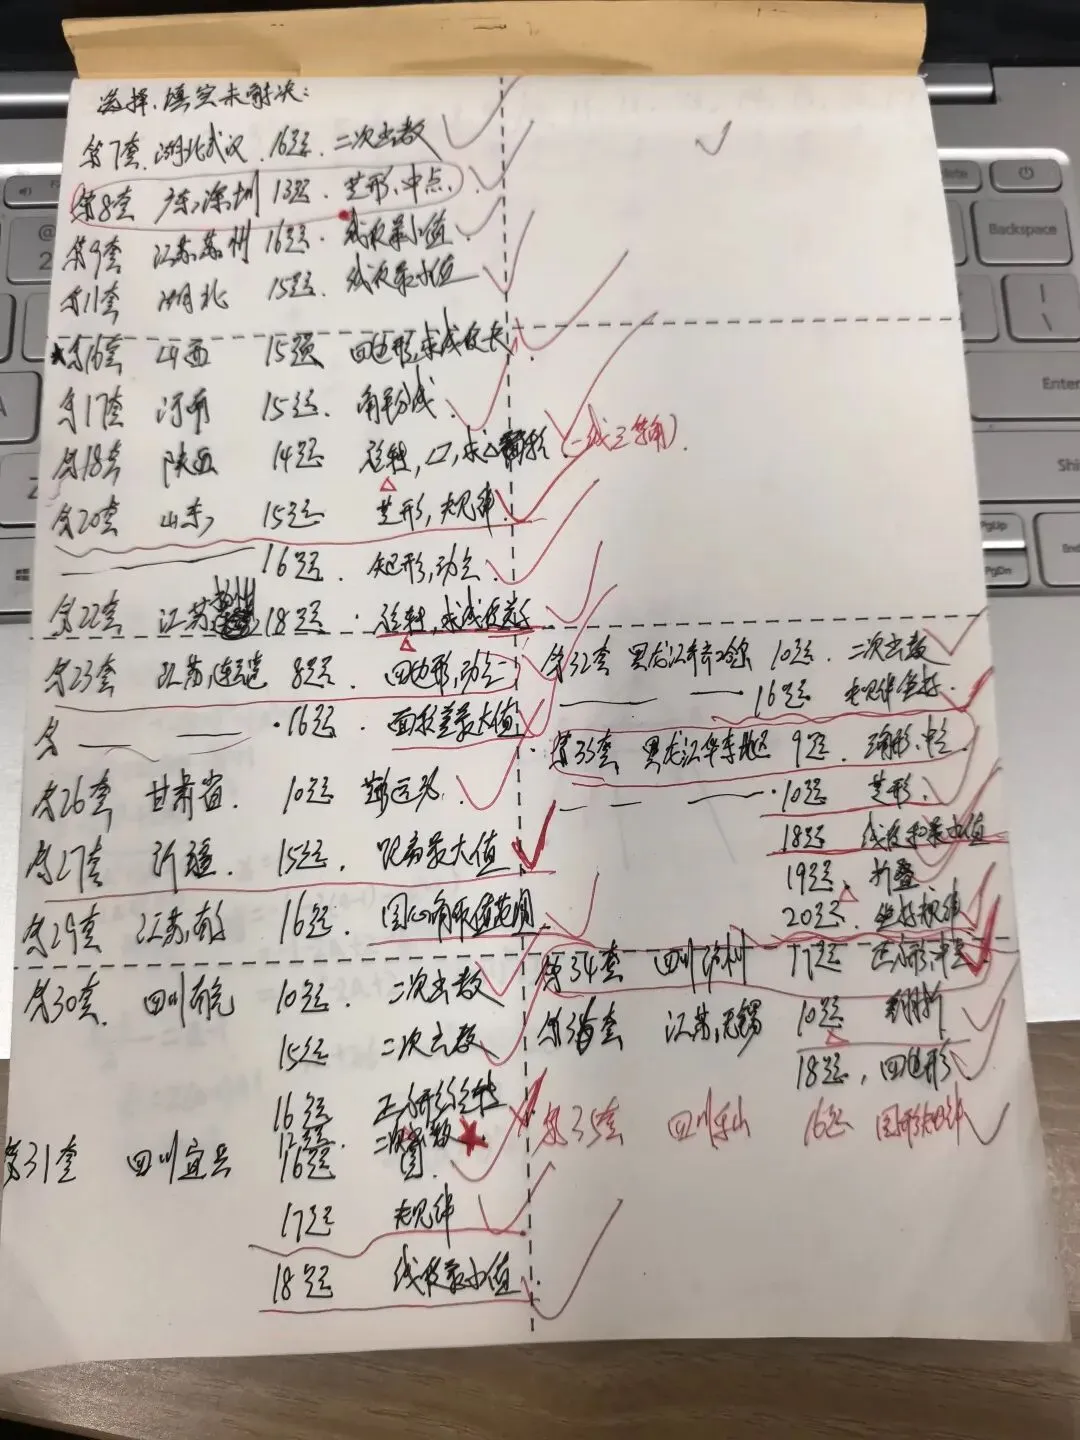 选择、填空未解决:
第7套 湖北武汉 16题. 二次函数
第8套 广东深圳 13题. 菱形,中点.
第9套 江苏苏州 16题. 线段最小值.
第11套 湖北 15题. 线段最小值
第16套 山西 15题 四边形,求线段长
第17套 河南 15题. 角平分线.
第18套 陕西 14题 (一线三等角).
第20套 山东 15题 菱形,规律.
16题. 矩形,动点.
第22套 江苏扬州 18题. 旋转,求线段
第23套 江苏,连云港 8题. 四边形,动点
第 16题. 面积差最大值
第26套 甘肃省. 10题
第27套 新疆. 15题. 距离最大值
第29套 江苏,南京 16题. 圆心角取值范围
第30套 四川南充 10题. 二次函数
15题 二次函数
16题 正方形旋转
12题. 二次函数
第31套 四川宜宾 16题 圆.
17题 规律
18题 线段最小值.
第32套 黑龙江齐齐哈尔 10题. 二次函数
16题 规律坐标.
第33套 黑龙江华东地区 9题. 三角形,中点.
10题 菱形.
18题 线段和最小值
19题. 折叠.
20题. 坐标规律
第34套 四川泸州 17题 正方形,中点
第36套 江苏,无锡 10题 翻折
18题, 四边形.
第35套 四川乐山 16题 图形规律
Backspace
Enter
PgUp
PgDn